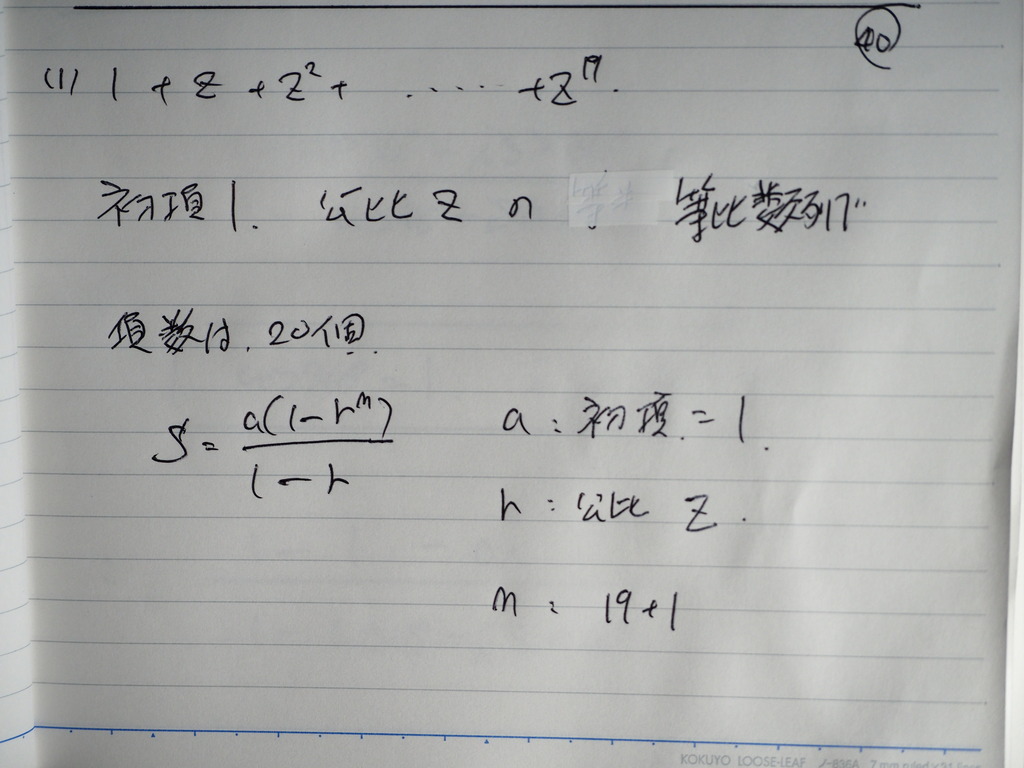 40
(1) 1 + z + z² + ..... + z¹⁹.
初項1. 公比 z の 等比数列で
項数は、20個.
S = a(1-rⁿ) / 1-r a : 初項. = 1.
r : 公比 z.
n : 19+1
KOKUYO LOOSE-LEAF ノ-836A 7 mm ruled×31 lines